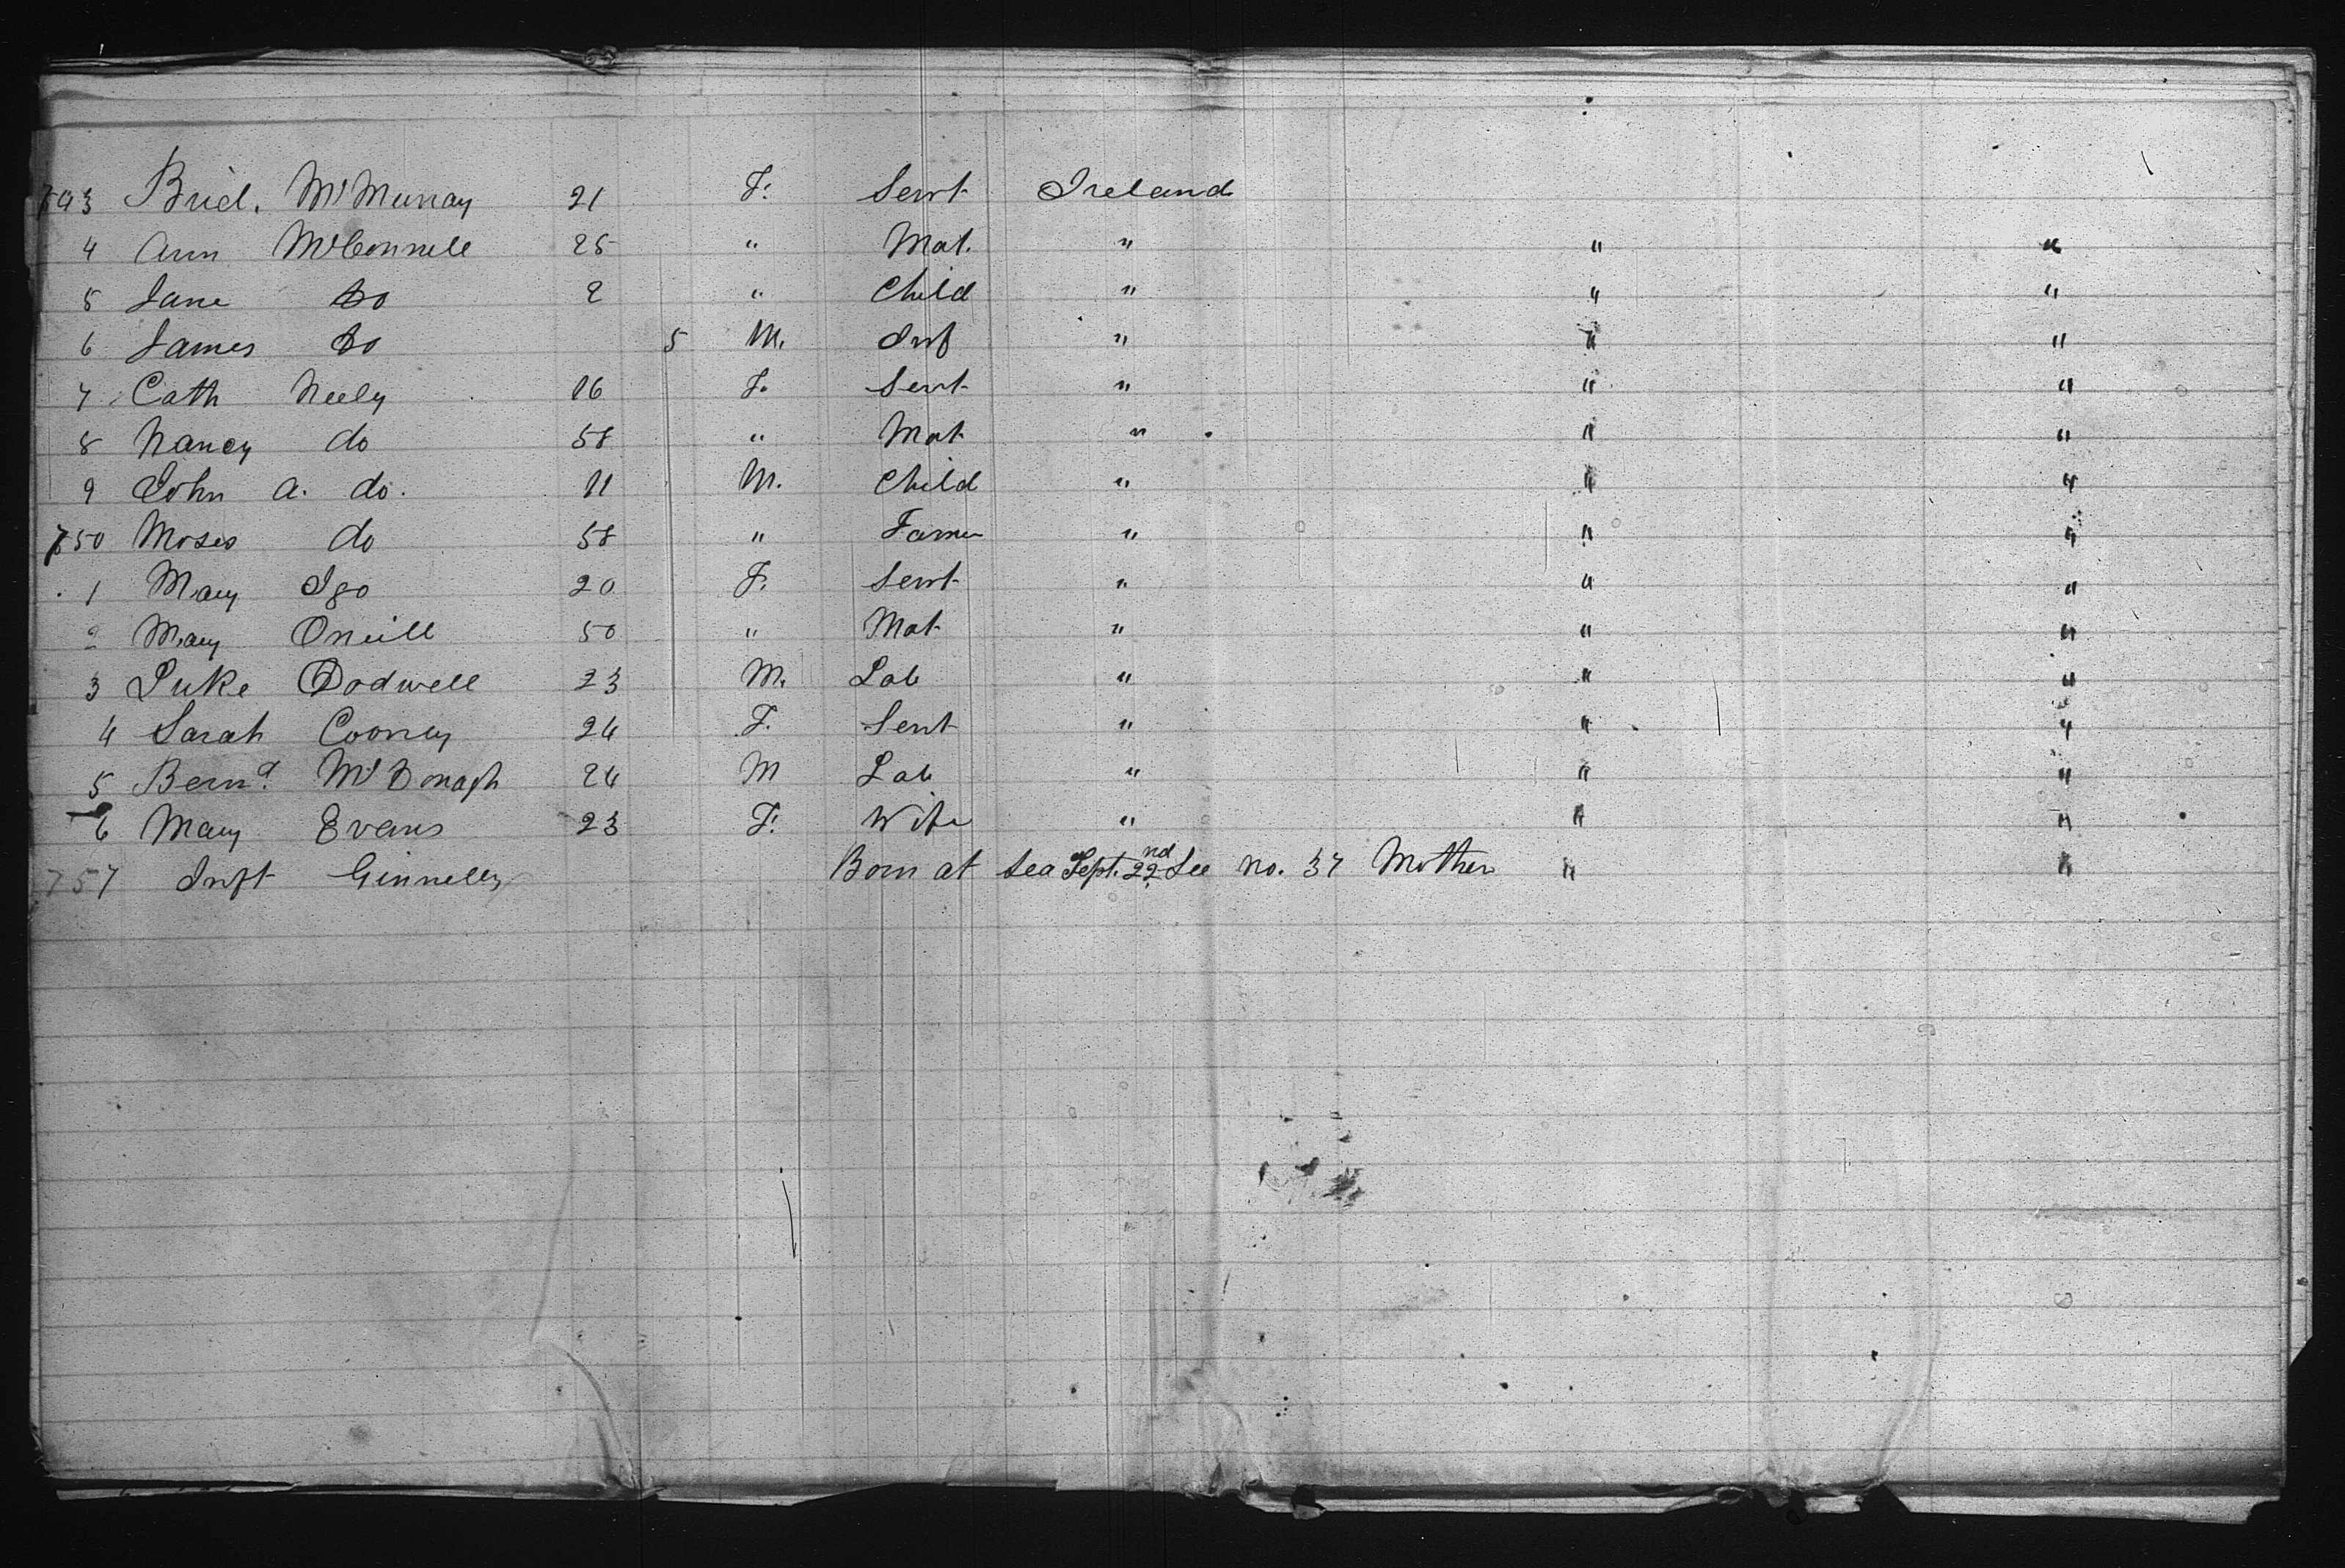 743 Brid. McMurray 21 F. Servt Ireland
4 Ann McConnell 25 " Mat. " " "
5 Jane Do 2 " Child " " "
6 James Do 5 M. Inf " " "
7 Cath Neely 16 F. Servt " " "
8 Nancy do 58 " Mat " " "
9 John A. do. 11 M. Child " " "
750 Moses do 58 " Farmer " " "
1 Mary Igo 20 F. Servt " " "
2 Mary Oneill 50 " Mat " " "
3 Luke Dodwell 23 M. Lab " " "
4 Sarah Cooney 24 F. Servt " " "
5 Bernd. McDonagh 24 M Lab " " "
6 Mary Evans 23 F. Wife " " "
757 Inft Ginnelly Born at Sea Sept. 22nd See no. 37 Mother " "